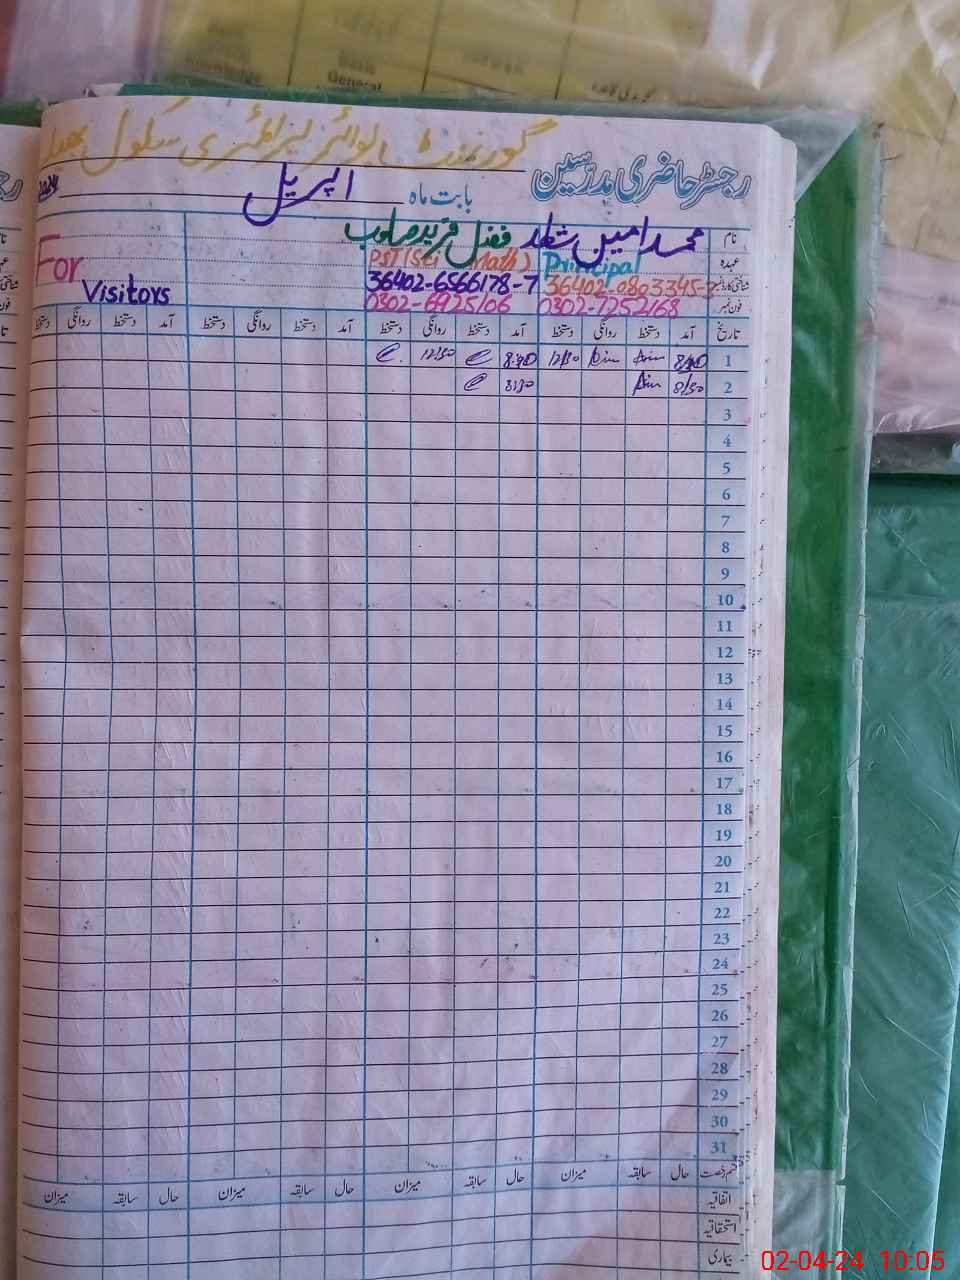 Basic
General
گورنمنٹ بوائز ایلیمنٹری سکول
رجسٹر حاضری مدرسین
بابت ماہ اپریل 2024
نام محمد امین شاہد فضل فرید صاحب
عہدہ Principal PST (Sci Math) For
شناختی کارڈ نمبر 36402-0803345-3 36402-6566178-7 Visitors
فون نمبر 0302-7252168 0302-6925106
تاریخ آمد دستخط روانگی دستخط آمد دستخط روانگی دستخط آمد دستخط روانگی دستخط آمد دستخط روانگی دستخط
1 8:30 12/30 8:30 12/30
2 8/30 8:30
3
4
5
6
7
8
9
10
11
12
13
14
15
16
17
18
19
20
21
22
23
24
25
26
27
28
29
30
31
حال سابقہ میزان حال سابقہ میزان حال سابقہ میزان حال سابقہ میزان
اتفاقیہ
استحقاقیہ
بیماری
02-04-24 10:05